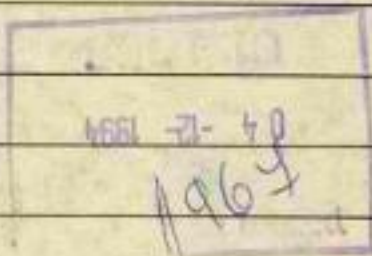 04 -12- 1994
1967